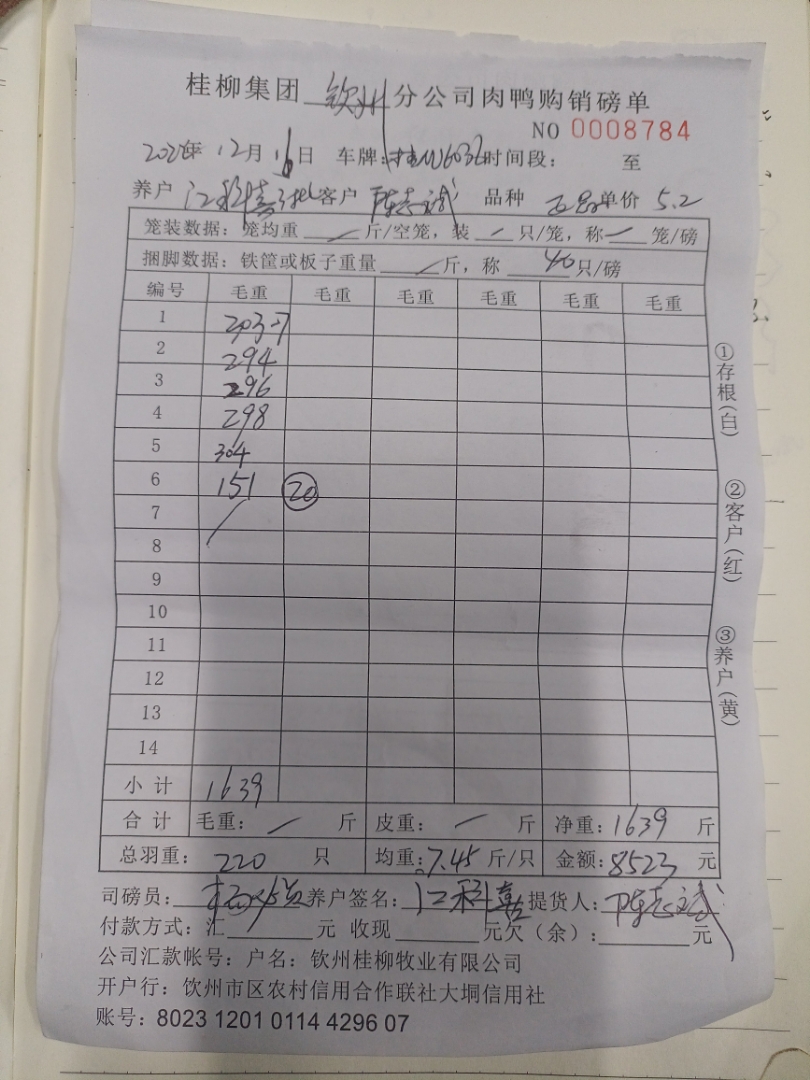 桂柳集团 钦州 分公司肉鸭购销磅单
NO 0008784
年 12月 16日 车牌: 时间段: 至
养户 客户 陈志斌 品种 单价 5.2
笼装数据: 笼均重 / 斤/空笼, 装 / 只/笼, 称 / 笼/磅
捆脚数据: 铁筐或板子重量 / 斤, 称 40 只/磅
编号 毛重 毛重 毛重 毛重 毛重 毛重
1
2 294
3 296
4 298
5 304
6 151 20
7 /
8
9
10
11
12
13
14
小 计 1639
合 计 毛重: / 斤 皮重: / 斤 净重: 1639 斤
总羽重: 220 只 均重: 7.45 斤/只 金额: 8523 元
司磅员: 养户签名: 江科喜 提货人: 陈志斌
付款方式: 汇 元 收现 元欠(余): 元
公司汇款帐号: 户名: 钦州桂柳牧业有限公司
开户行: 饮州市区农村信用合作联社大垌信用社
账号: 8023 1201 0114 4296 07
①存根(白)
②客户(红)
③养户(黄)